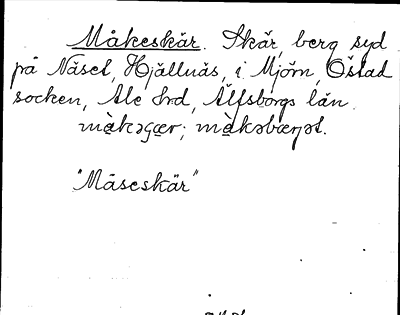 Måkeskär. Skär, berg syd
på Näset, Hjällnäs, i Mjörn, Östad
socken, Ale Hrd, Älfsborgs län.
màkəɕær; màkəbærjət.
"Måseskär"